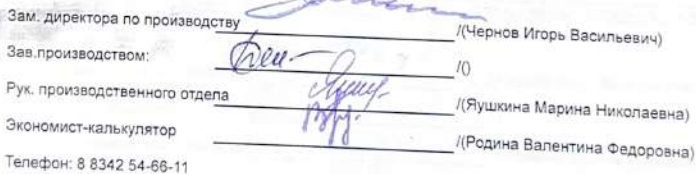 Зам. директора по производству /(Чернов Игорь Васильевич)
Зав.производством: /()
Рук. производственного отдела /(Яушкина Марина Николаевна)
Экономист-калькулятор /(Родина Валентина Федоровна)
Телефон: 8 8342 54-66-11